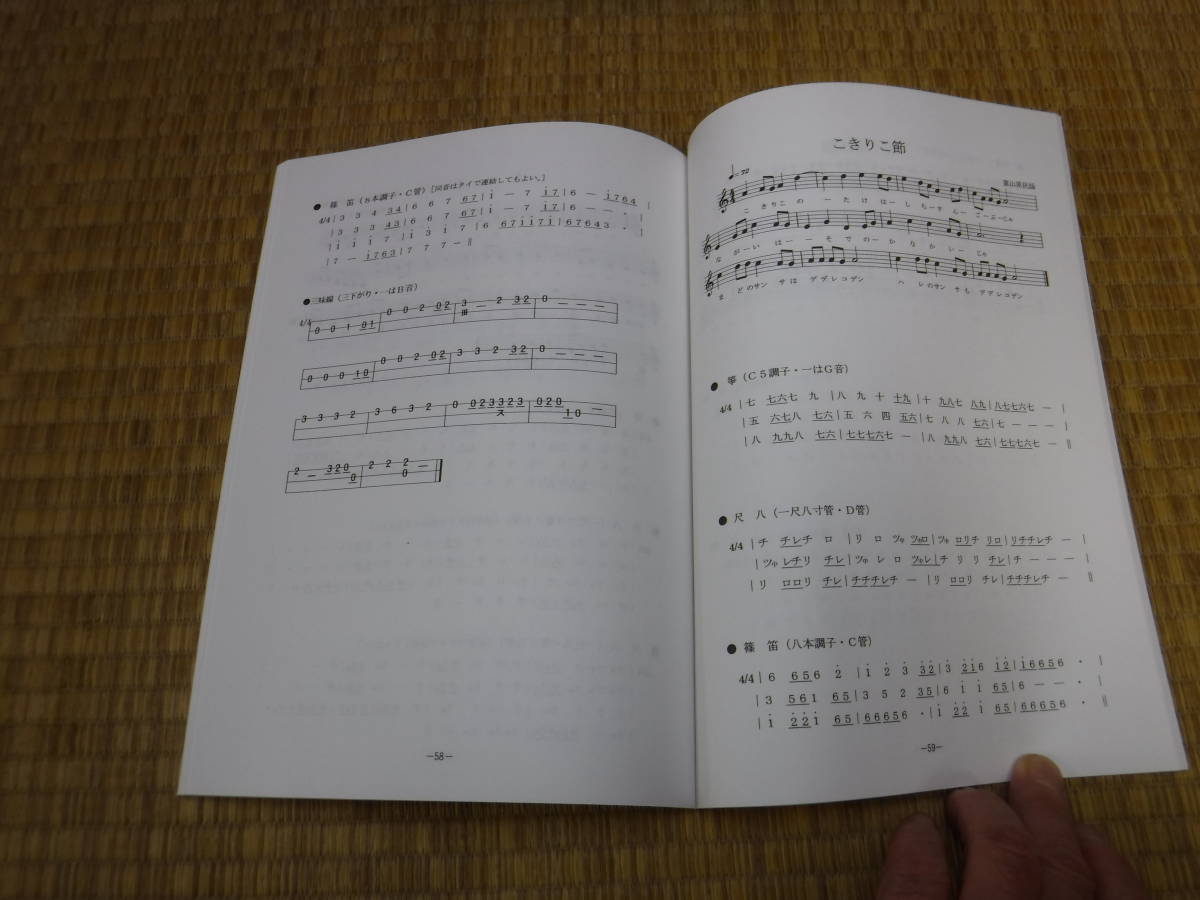 ● 篠 笛 (8本調子・C管) [同音はタイで連結してもよい。]
4/4 | 3 3 4 34 | 6 6 7 67 | i ー 7 i7 | 6 ー i764 |
| 3 3 3 43 | 6 6 7 67 | i ー 7 i7 | 6 ー ー ・ |
| i i i 7 | i 3 i 7 | 6 67i i7i | 67643 ・ |
| 7 ー i763 | 7 7 7 ー ‖
● 三味線 (三下がり・一はB音)
4/4 0 0 1 01 0 0 2 02 3 ー 2 32 0 ー ー ー
0 0 0 10 0 0 2 02 3 3 2 32 0 ー ー ー
3 3 3 2 3 6 3 2 0 023323 020 10 ー
ス
2 ー 320 0 2 2 2 0 ー
ー58ー
こきりこ節
♩=72
富山県民謡
こ きりこ の ー たけ は ー し ち ー す ん ー ご ー ぶ ー じゃ
なが ー い は ー ー そ で の ー か な か い ー じゃ
ま ど の サン サ は デ デ レ コ デン ハ レ の サン サ も デ デ レ コ デン
● 箏 (C5調子・一はG音)
4/4 | 七 七六七 九 | 八 九 十 十九 | 十 九八七 八九 | 八七七六七 ー |
| 五 六七八 七六 | 五 六 四 五六 | 七 八 八 七六 | 七 ー ー ー |
| 八 九九八 七六 | 七七七六七 ー | 八 九九八 七六 | 七七七六七 ー ‖
● 尺 八 (一尺八寸管・D管)
4/4 | チ チレチ ロ | リ ロ ツゅ ツゅロ | ツゅ ロリチ リロ | リチチレチ ー |
| ツゅ レチリ チレ | ツゅ レ ロ ツゅレ | チ リ リ チレ | チ ー ー ー |
| リ ロロリ チレ | チチチレチ ー | リ ロロリ チレ | チチチレチ ー ‖
● 篠 笛 (八本調子・C管)
4/4 | 6 656 2 | i 2 3 32 | 3 2i6 i2 | i6656 ・ |
| 3 561 65 | 3 5 2 35 | 6 i i 65 | 6 ー ー ・ |
| i 22i 65 | 66656 ・ | i 22 i 65 | 66656 ・ ‖
ー59ー